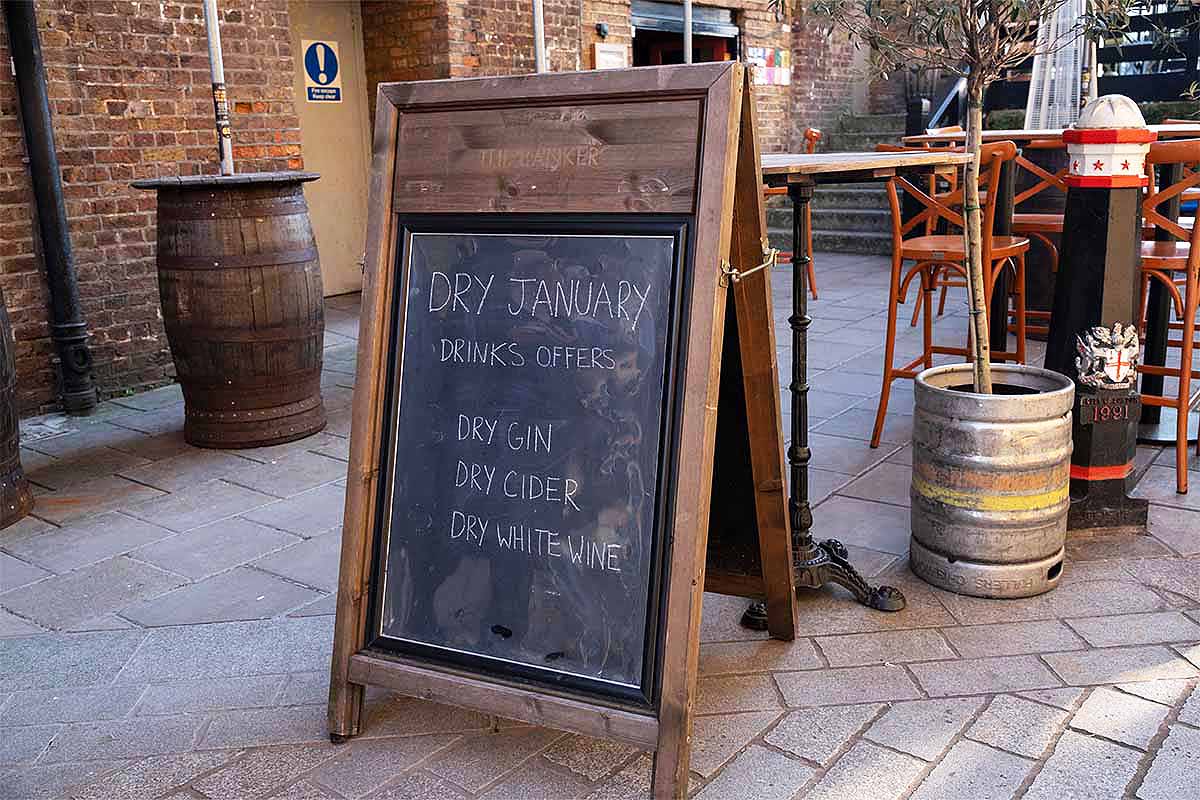 Fire escape
Keep clear
THE BANKER
DRY JANUARY
DRINKS OFFERS
DRY GIN
DRY CIDER
DRY WHITE WINE
1991